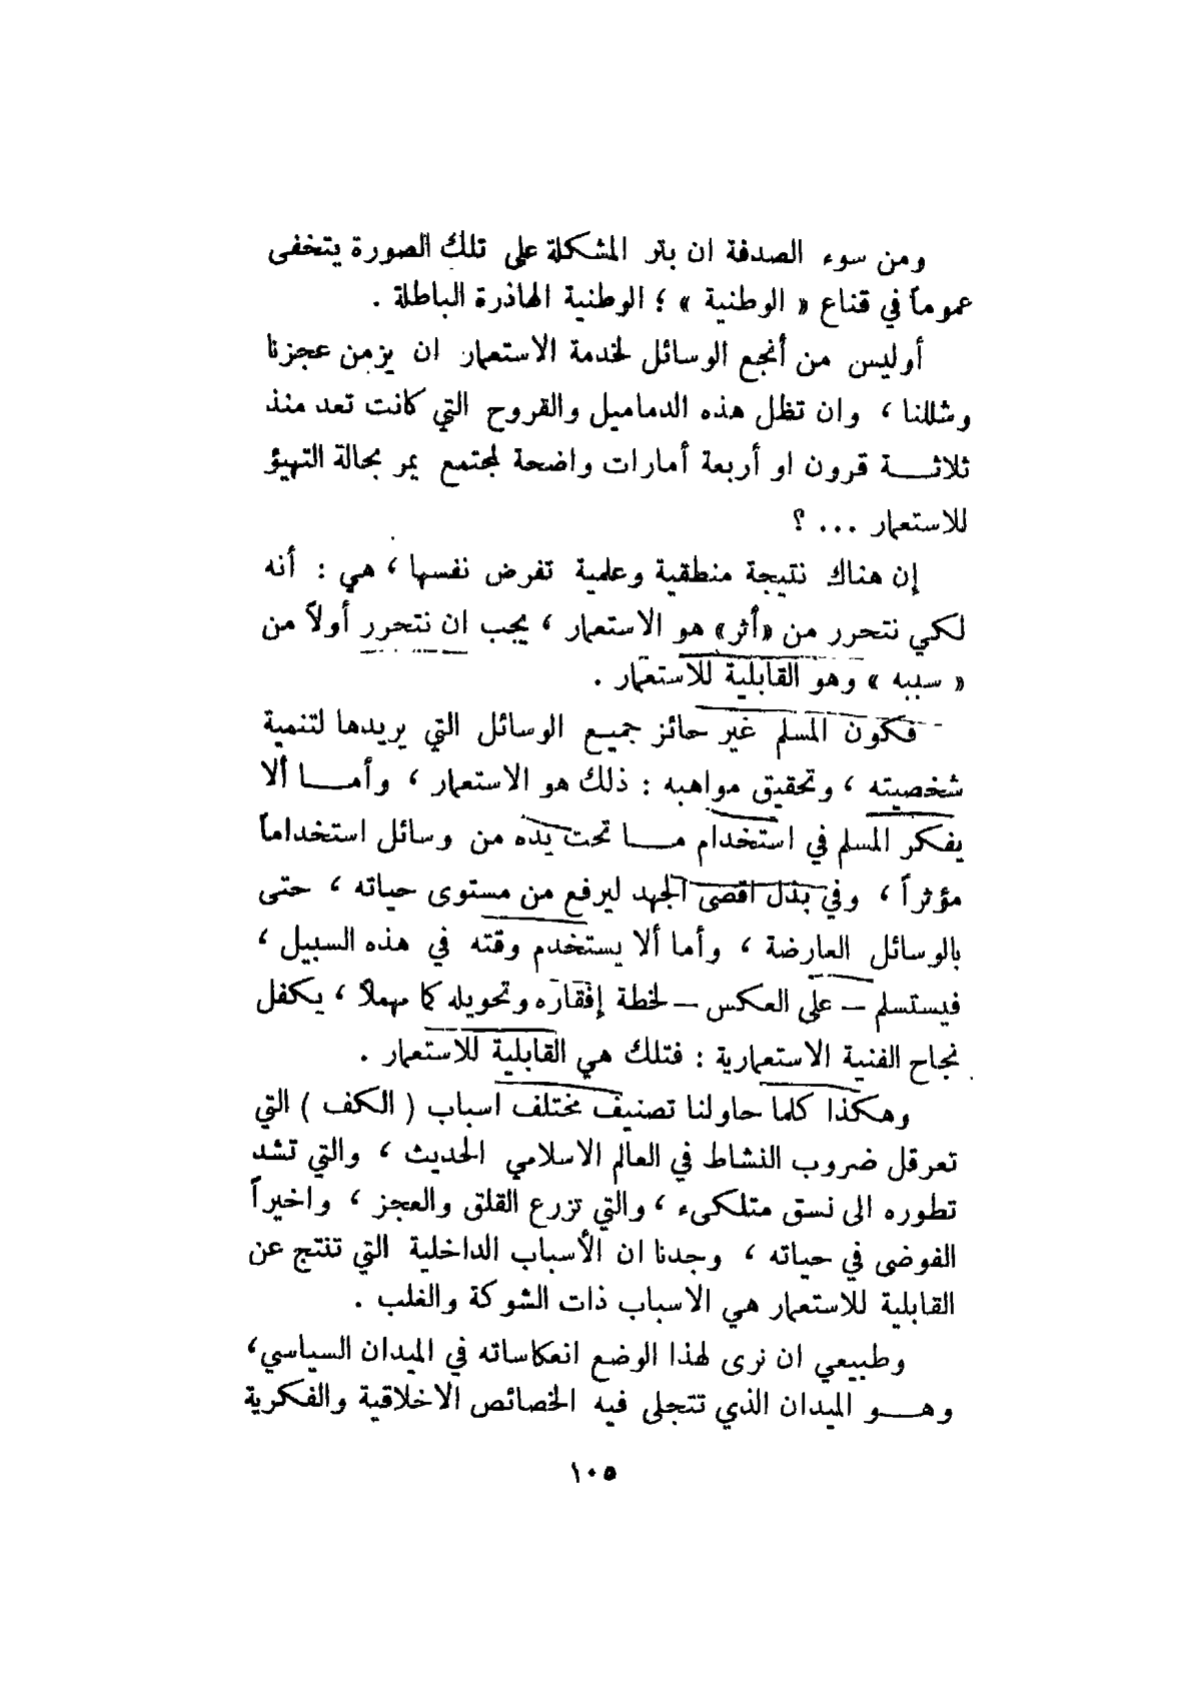 ومن سوء الصدفة ان بتر المشكلة على تلك الصورة يتخفى
عموماً في قناع « الوطنية » ؛ الوطنية الهاذرة الباطلة .
أوليس من أنجع الوسائل لخدمة الاستعمار ان يزمن عجزنا
وشللنا ، وان تظل هذه الدماميل والقروح التي كانت تعد منذ
ثلاثة قرون او أربعة أمارات واضحة لمجتمع يمر بحالة التهيؤ
للاستعمار ... ؟
إن هناك نتيجة منطقية وعلمية تفرض نفسها ، هي : أنه
لكي نتحرر من «أثر» هو الاستعمار ، يجب ان نتحرر أولاً من
« سببه » وهو القابلية للاستعمار .
فكون المسلم غير حائز جميع الوسائل التي يريدها لتنمية
شخصيته ، وتحقيق مواهبه : ذلك هو الاستعمار ، وأما ألا
يفكر المسلم في استخدام ما تحت يده من وسائل استخداماً
مؤثراً ، وفي بذل اقصى الجهد ليرفع من مستوى حياته ، حتى
بالوسائل العارضة ، وأما ألا يستخدم وقته في هذه السبيل ،
فيستسلم – على العكس – لخطة إفقاره وتحويله كما مهملاً ، يكفل
نجاح الفنية الاستعمارية : فتلك هي القابلية للاستعمار .
وهكذا كلما حاولنا تصنيف مختلف اسباب ( الكف ) التي
تعرقل ضروب النشاط في العالم الاسلامي الحديث ، والتي تشد
تطوره الى نسق متلكىء ، والتي تزرع القلق والعجز ، واخيراً
الفوضى في حياته ، وجدنا ان الأسباب الداخلية التي تنتج عن
القابلية للاستعمار هي الاسباب ذات الشوكة والغلب .
وطبيعي ان نرى لهذا الوضع انعكاساته في الميدان السياسي،
وهو الميدان الذي تتجلى فيه الخصائص الاخلاقية والفكرية
١٠٥